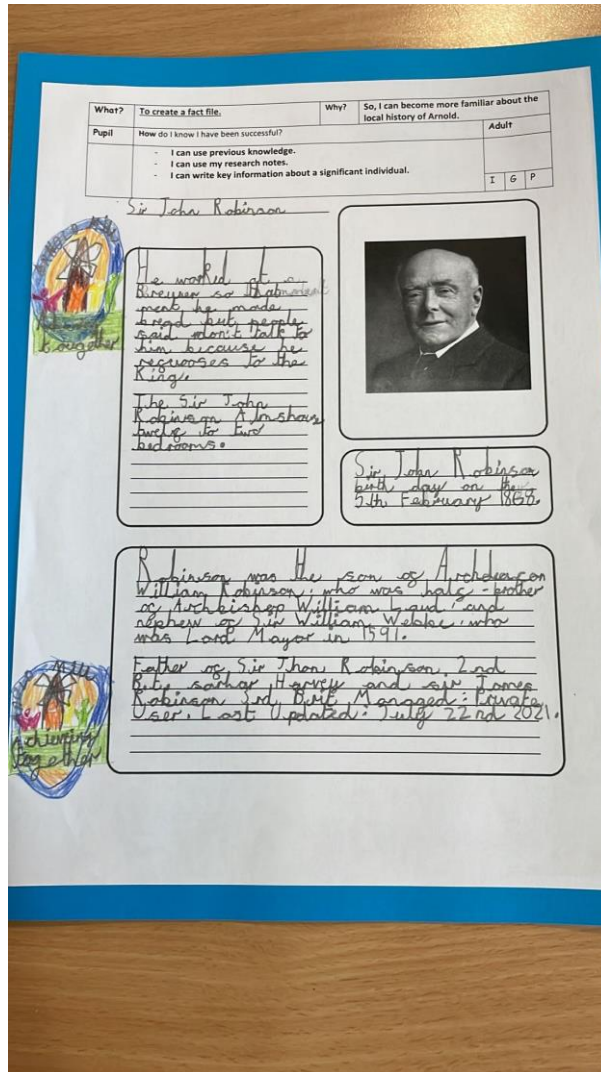 What? To create a fact file. Why? So, I can become more familiar about the
local history of Arnold.
Pupil How do I know I have been successful? Adult
- I can use previous knowledge.
- I can use my research notes.
- I can write key information about a significant individual.
I G P
Sir John Robinson
He worked at a
so that
ment he made
bread but people
said don't talk to
him bicause he
to the
King.
The Sir John
Robinson Almshous
twelf to two
bedrooms.
Sir John Robinson
birth day on the
5th February 1868.
Robinson was the son of Archdeacon
William Robinson, who was half-brother
of Archbishop William Laud, and
nephew of Sir William Webbe, who
was Lord Mayor in 1591.
Father of Sir Jhon Robinson, 2nd
Bt, Harvey and sir James
Robinson 3rd, Managed: Private
User. Last Updated: July 22nd 2021.
tougether
Achieving
together